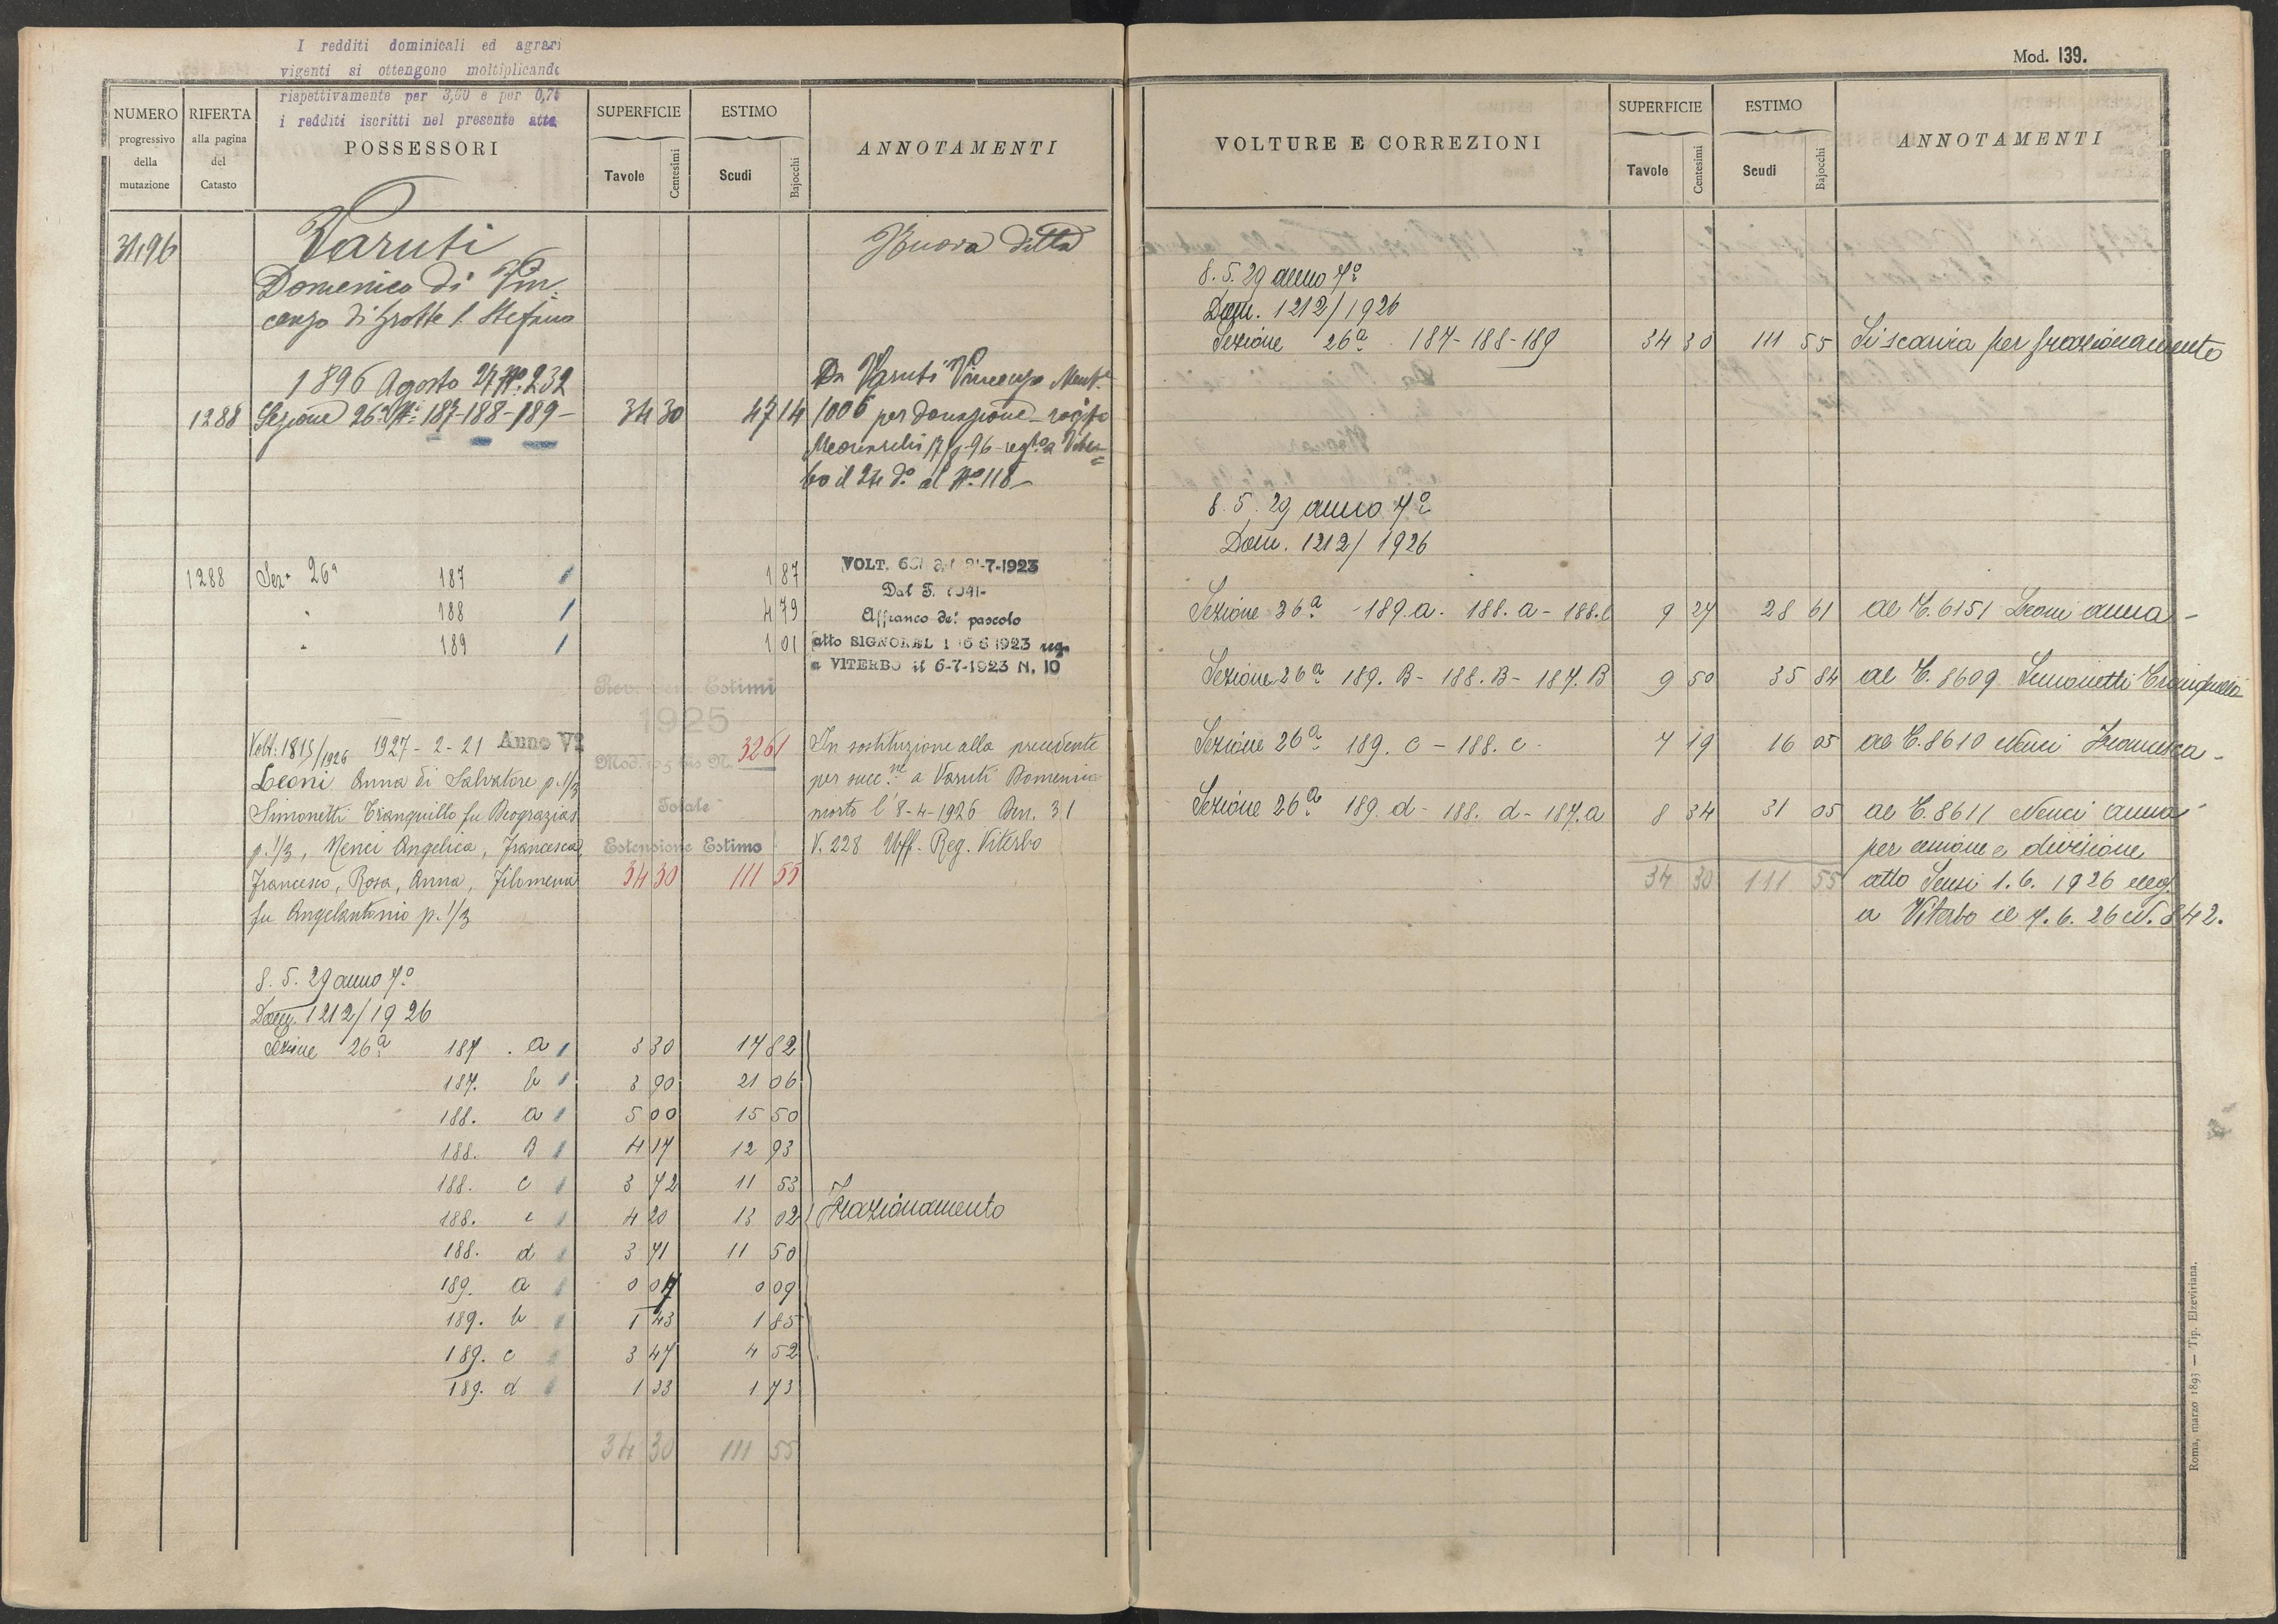 I redditi dominicali ed agrari
vigenti si ottengono moltiplicando
rispettivamente per 3,50 e per 0,75
i redditi iscritti nel presente atto
NUMERO
progressivo
della
mutazione
RIFERTA
alla pagina
del
Catasto
POSSESSORI
SUPERFICIE
Tavole
Centesimi
ESTIMO
Scudi
Bajocchi
ANNOTAMENTI
3196
Varuti
Nuova ditta
Domenico di Vin=
cenzo di Grotte S. Stefano
1896 Agosto 27 N.° 232
Da Varuti Vincenzo
1288 Sezione 26ª Nⁱ 187-188-189- 34 30 47 14
1006 per donazione - rogito
17/7-96 - regto a Viter=
bo il 24 d.° al N.° 118-
1288 Sez. 26ª 187 1 87
VOLT. 21-7-1923
188 4 79
Affranco de' pascolo
189 1 01
atto SIGNOREL 16 6 1923 reg.
a VITERBO il 6-7-1923 N. 10
Rev. Gen. Estimi
1925
Mod. 105 bis N. 3261
Volt. 1815/1926 1927-2-21 Anno Vº
In sostituzione alla precedente
Leoni Anna di Salvatore p. 1/3
per succ.ne a Varuti Domenico
Simonetti Tranquillo fu Deograzias
Totale
morto l'8-4-1926 Den. 31
p. 1/3, Nenci Angelica, Francesca,
Estensione Estimo
V. 228 Uff. Reg. Viterbo
Francesco, Rosa, Anna, Filomena
34 30 111 55
fu Angelantonio p. 1/3
8. 5. 29 anno 7º
Dom. 1212/1926
Sezione 26ª 187. a 3 30 17 82
187. b 3 90 21 06
188. a 5 00 15 50
188. B 4 17 12 93
188. c 3 72 11 53
188. e 4 20 13 02 Frazionamento
188. d 3 71 11 50
189. a 0 07 0 09
189. b 1 43 1 85
189. c 3 47 4 52
189. d 1 33 1 73
34 30 111 55
Mod. 139.
VOLTURE E CORREZIONI
SUPERFICIE
Tavole
Centesimi
ESTIMO
Scudi
Bajocchi
ANNOTAMENTI
8. 5. 29 anno 7º
Dom. 1212/1926
Sezione 26ª 187-188-189 34 30 111 55 Si scarica per frazionamento
8. 5. 29 anno 7º
Dom. 1212/1926
Sezione 26ª 189.a. 188.a - 188.e 9 27 28 61 al C. 6151 Leoni Anna-
Sezione 26ª 189. B - 188. B - 187. B 9 50 35 84 al C. 8609 Simonetti Tranquillo
Sezione 26ª 189. c - 188. c. 7 19 16 05 al C. 8610 Nenci Francesca-
Sezione 26ª 189. d - 188. d - 187.a 8 34 31 05 al C. 8611 Nenci Anna
per cessione e divisione
34 30 111 55 atto Sensi 1. 6. 1926 reg.
a Viterbo il 7. 6. 26 N. 842.
Roma, marzo 1893 — Tip. Elzeviriana.